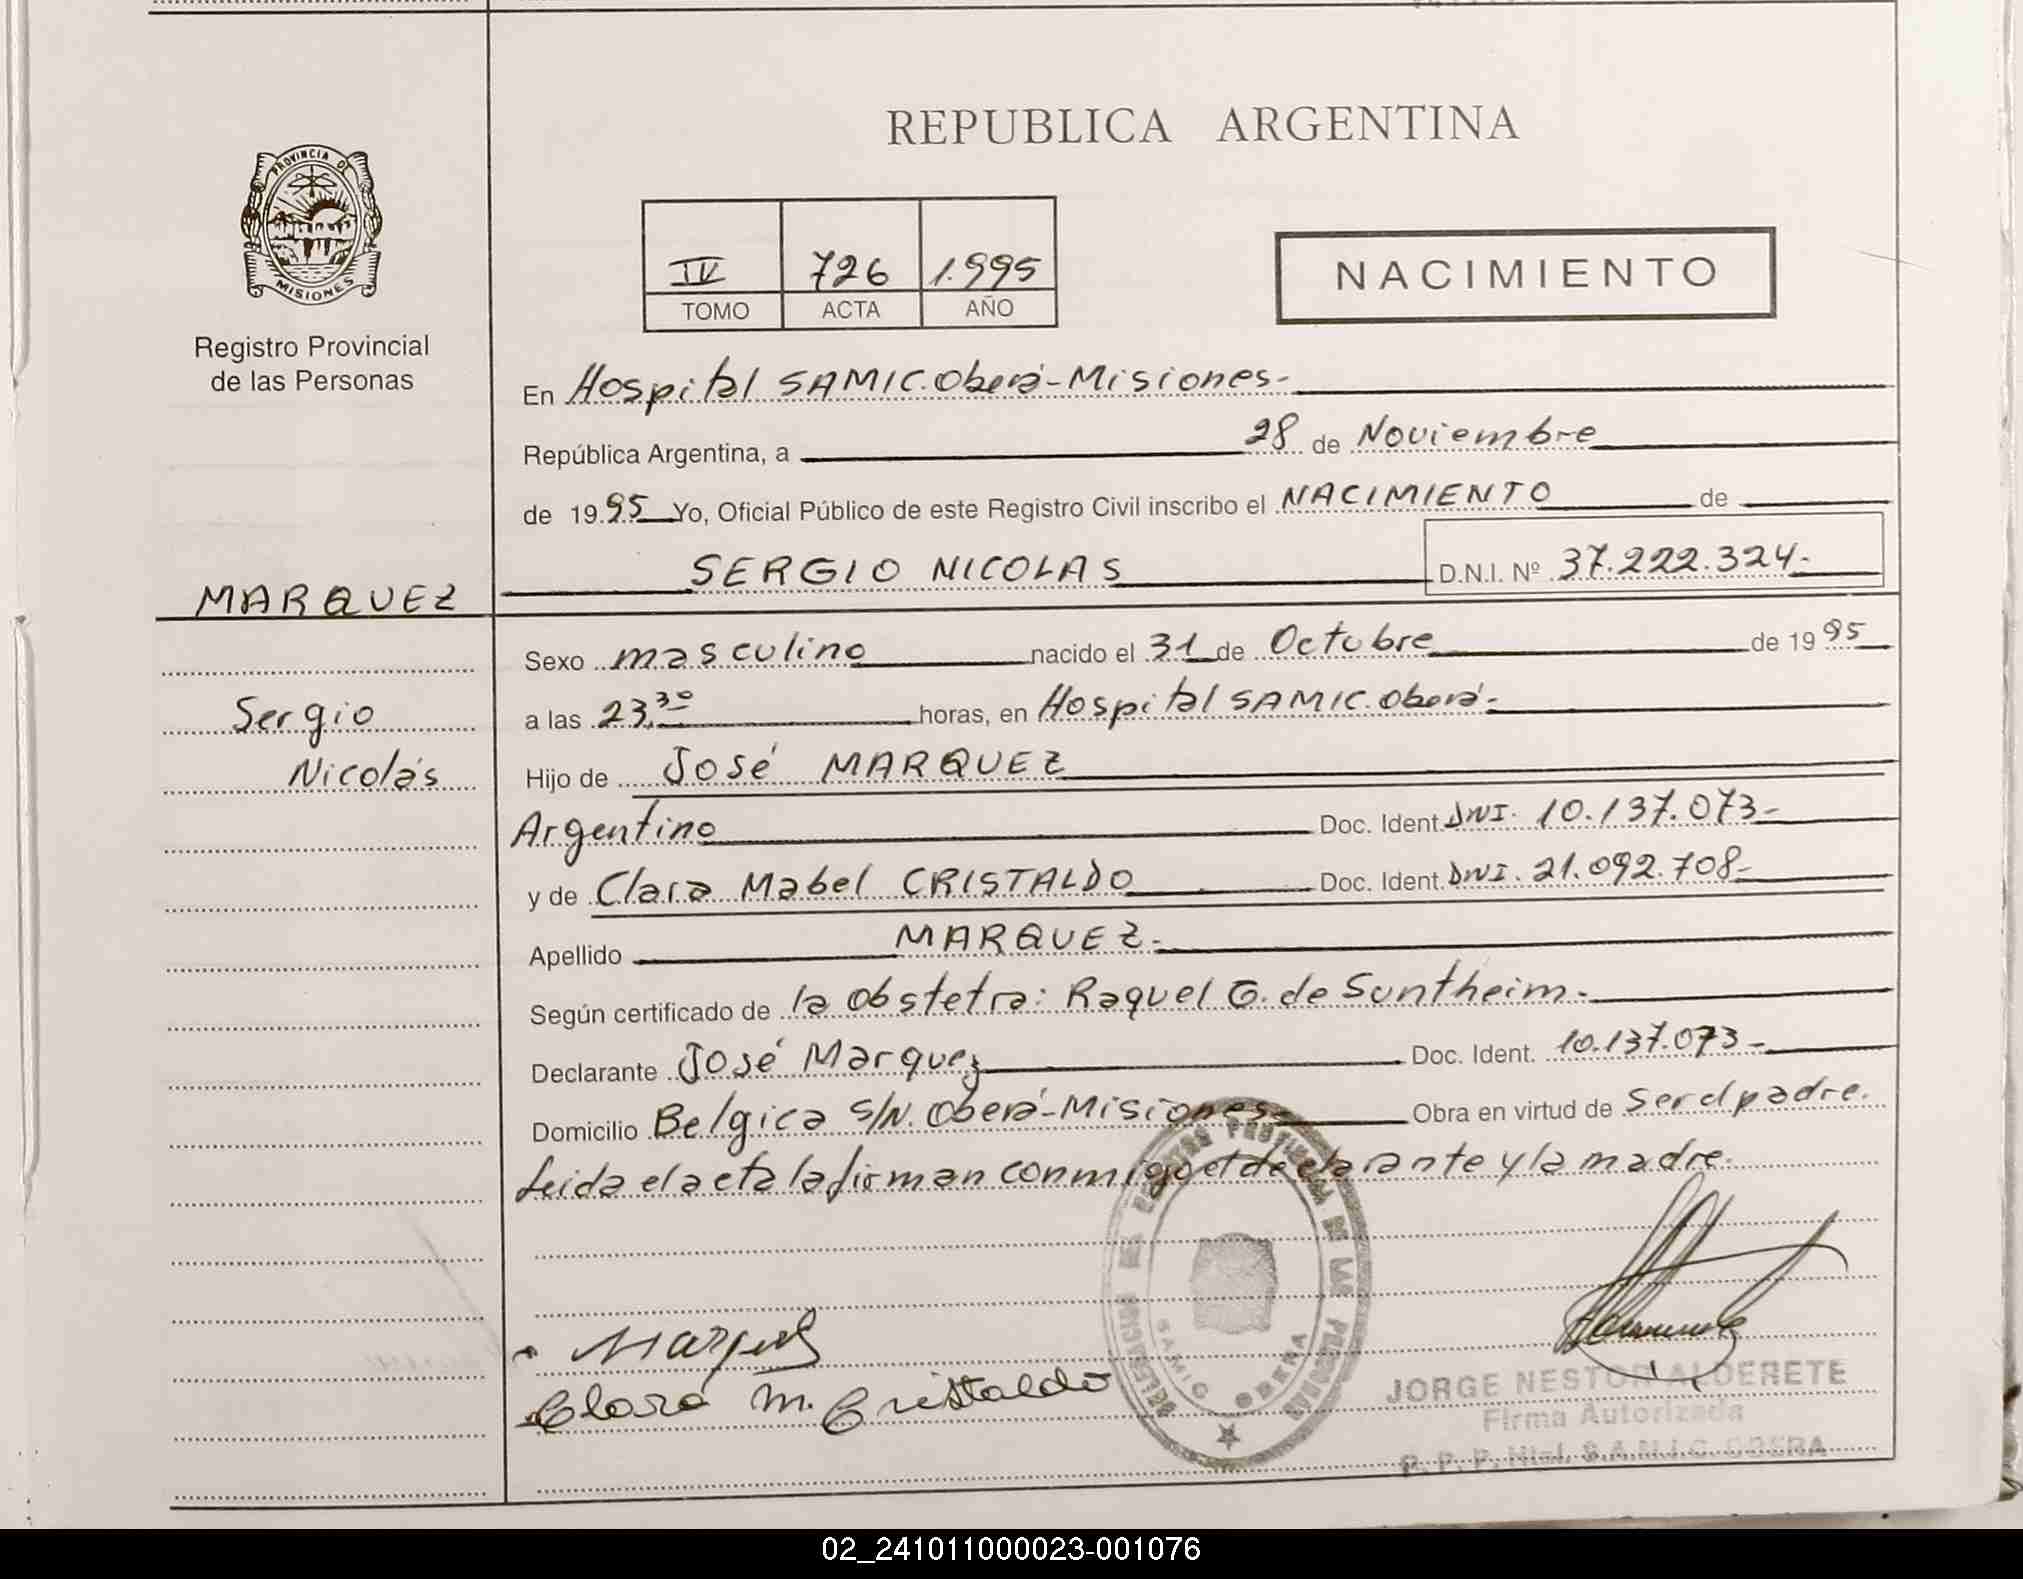 REPUBLICA ARGENTINA
PROVINCIA DE
MISIONES
Registro Provincial
de las Personas
IV 726 1.995
TOMO ACTA AÑO
NACIMIENTO
En Hospital SAMIC. Oberá-Misiones-
República Argentina, a 28 de Noviembre
de 1995 Yo, Oficial Público de este Registro Civil inscribo el NACIMIENTO de
SERGIO NICOLAS D.N.I. Nº 37.222.324-
MARQUEZ
Sergio
Nicolás
Sexo masculino nacido el 31 de Octubre de 1995
a las 23,30 horas, en Hospital SAMIC. Oberá-
Hijo de José MARQUEZ
Argentino Doc. Ident. DNI. 10.137.073-
y de Clara Mabel CRISTALDO Doc. Ident. DNI. 21.092.708-
Apellido MARQUEZ-
Según certificado de la obstetra: Raquel G. de Suntheim-
Declarante José Marquez Doc. Ident. 10.137.073-
Domicilio Belgica S/N. Oberá-Misiones- Obra en virtud de Ser el padre.
Leida el acta la firman conmigo el declarante y la madre.
DELEGACION DEL REGISTRO PROVINCIAL DE LAS PERSONAS
SAMIC OBERA
Marquez
Clara M. Cristaldo
JORGE NESTOR ALDERETE
Firma Autorizada
R. P. P. S.A.M.I.C. OBERA
02_241011000023-001076